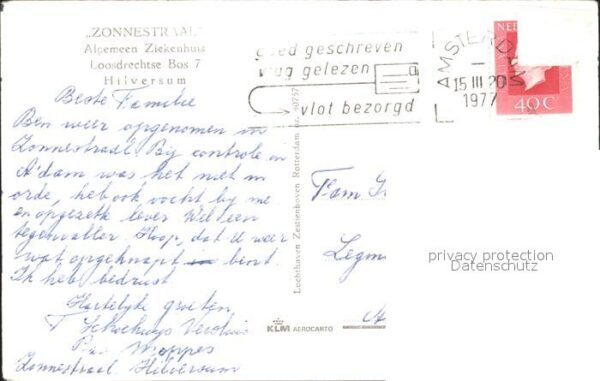 „ZONNESTRAAL"
Algemeen Ziekenhuis
Loosdrechtse Bos 7
Hilversum
Beste Familie
Ben weer opgenomen in
Zonnestraal Bij controle in
A'dam was het niet in
orde, heb ook vocht bij me
en opgezette lever Wel een
tegenvaller. Hoop, dat U weer
wat opgeknapt bent.
Ik heb bedrust
Hartelijke groeten,
Zonnestraal Hilversum
goed geschreven
vlug gelezen
vlot bezorgd
AMSTERDAM
15 III 20
1977
NED
40 C
Luchthaven Zestienhoven Rotterdam nr. 40757
KLM AEROCARTO
Fam
Legm
privacy protection
Datenschutz